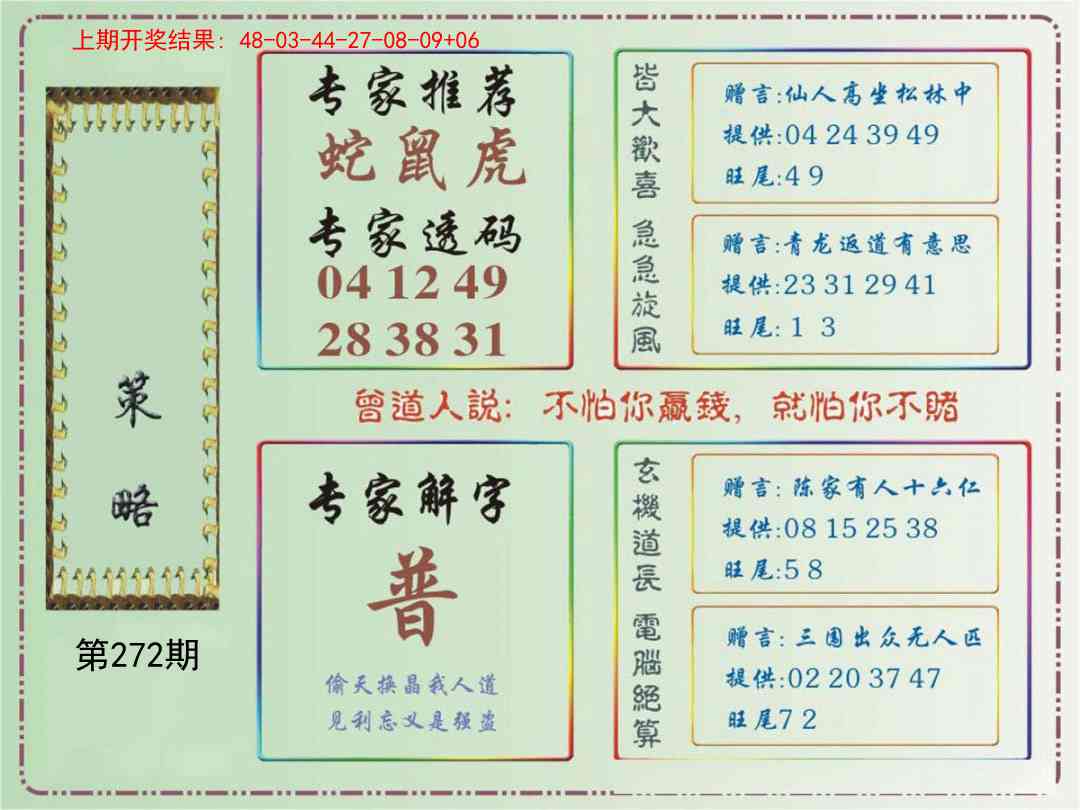 上期开奖结果: 48-03-44-27-08-09+06
策略
第272期
专家推荐
蛇鼠虎
专家透码
04 12 49
28 38 31
皆大歡喜
赠言:仙人高坐松林中
提供:04 24 39 49
旺尾:4 9
急急旋風
赠言:青龙返道有意思
提供:23 31 29 41
旺尾: 1 3
曾道人説: 不怕你贏錢, 就怕你不賭
专家解字
普
偷天换晶我人道
见利忘义是强盗
玄機道長
赠言: 陈家有人十六仁
提供:08 15 25 38
旺尾:5 8
電腦絕算
赠言: 三国出众无人匹
提供:02 20 37 47
旺尾7 2